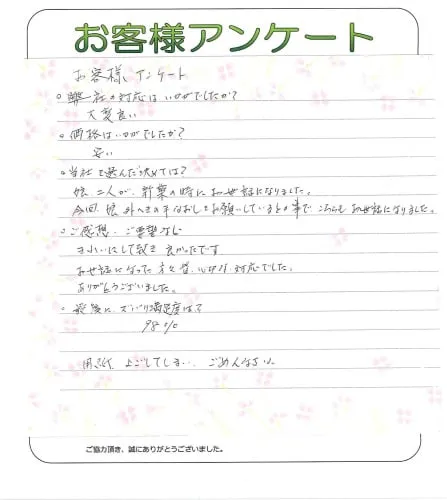 お客様アンケート
お客様アンケート
○弊社の対応はいかがでしたか?
大変良い
○価格はいかがでしたか?
安い
○当社を選んだ決めては?
娘二人が、葬業の時にお世話になりました。
今回、娘が の手なおしをお願いしているとの事で こちらもお世話になりました。
○ご感想・ご要望など
きれいにして頂き良かったです
お世話になった方々皆、 対応でした。
ありがとうございました。
○最後に、ズバリ満足度は?
98%
用紙、よごしてしまい、ごめんなさい
ご協力頂き、誠にありがとうございました。